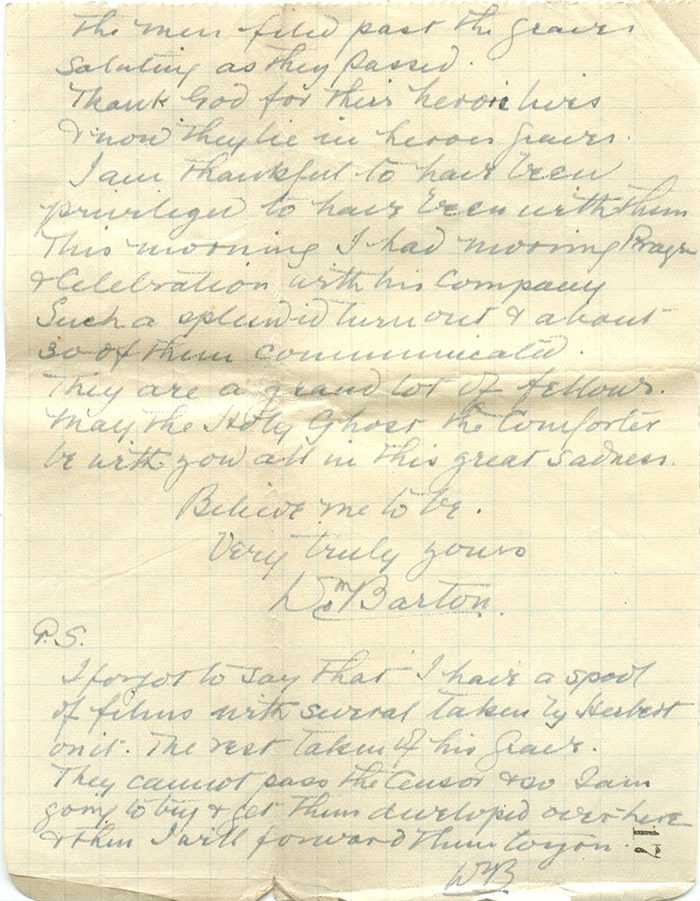 The men filed past the graves
saluting as they passed.
Thank God for their heroic lives
& now they lie in heroes graves.
I am thankful to have been
privileged to have been with them
This morning I had morning Prayer
& Celebration with his Company
Such a splendid turn out & about
30 of them communicated.
They are a grand lot of fellows.
May the Holy Ghost the Comforter
be with you all in this great sadness.
Believe me to be.
Very truly yours
Wm Barton.
P.S.
I forgot to say that I have a spool
of films with several taken by Herbert
on it. The rest taken of his grave.
They cannot pass the Censor & so I am
going to try & get them developed over here
& then I will forward them to you.
17
WB